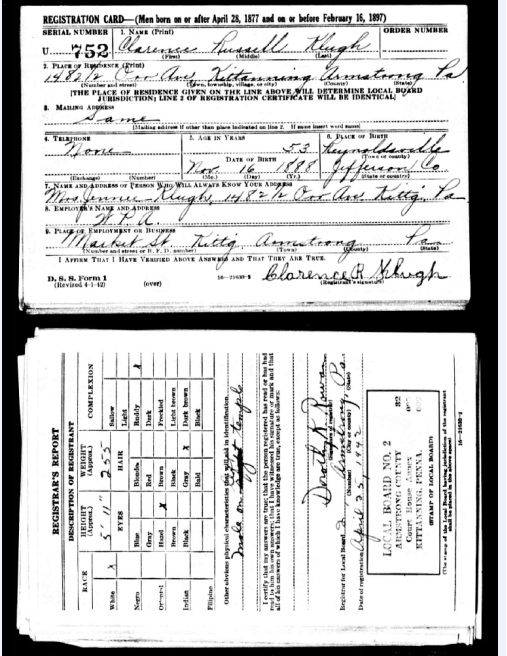 REGISTRATION CARD—(Men born on or after April 28, 1877 and on or before February 16, 1897)
SERIAL NUMBER 1. NAME (Print) ORDER NUMBER
U 752 Clarence Russell Klugh
(First) (Middle) (Last)
2. PLACE OF RESIDENCE (Print)
1482½ Orr Av. Kittanning Armstrong Pa
(Number and street) (Town, township, village, or city) (County) (State)
[THE PLACE OF RESIDENCE GIVEN ON THE LINE ABOVE WILL DETERMINE LOCAL BOARD
JURISDICTION; LINE 2 OF REGISTRATION CERTIFICATE WILL BE IDENTICAL]
3. MAILING ADDRESS
Same
[Mailing address if other than place indicated on line 2. If same insert word same]
4. TELEPHONE 5. AGE IN YEARS 6. PLACE OF BIRTH
None 53 Reynoldsville
DATE OF BIRTH (Town or county)
Nov. 16 1888 Jefferson Co
(Exchange) (Number) (Mo.) (Day) (Yr.) (State or country)
7. NAME AND ADDRESS OF PERSON WHO WILL ALWAYS KNOW YOUR ADDRESS
Mrs. Jennie Klugh, 1482½ Orr Av. Kittg. Pa
8. EMPLOYER'S NAME AND ADDRESS
W.P.A.
9. PLACE OF EMPLOYMENT OR BUSINESS
Market St. Kittg. Armstrong Pa
(Number and street or R. F. D. number) (Town) (County) (State)
I AFFIRM THAT I HAVE VERIFIED ABOVE ANSWERS AND THAT THEY ARE TRUE.
D. S. S. Form 1
(Revised 4-1-42) (over) 16—21630-2 Clarence R Klugh
(Registrant's signature)
REGISTRAR'S REPORT
DESCRIPTION OF REGISTRANT
RACE HEIGHT (Approx.) WEIGHT (Approx.) COMPLEXION
5' 11" 255
EYES HAIR
White X Blue Blonde Sallow
Light
Negro Gray Red Ruddy X
Dark
Oriental Hazel X Brown Freckled
Brown Black Light brown
Indian Black Gray X Dark brown
Bald Black
Filipino
Other obvious physical characteristics that will aid in identification
mole on left temple
I certify that my answers are true; that the person registered has read or has had
read to him his own answers; that I have witnessed his signature or mark and that
all of his answers of which I have knowledge are true, except as follows:
Dorothy K. Rowan
(Signature of registrar)
Registrar for Local Board 2 Armstrong Pa.
(Number) (City or county) (State)
Date of registration April 25, 1942
LOCAL BOARD NO. 2 32
ARMSTRONG COUNTY
Court House Annex
KITTANNING, PENNA.
(STAMP OF LOCAL BOARD)
(The stamp of the Local Board having jurisdiction of the registrant
shall be placed in the above space)
16—21630-2